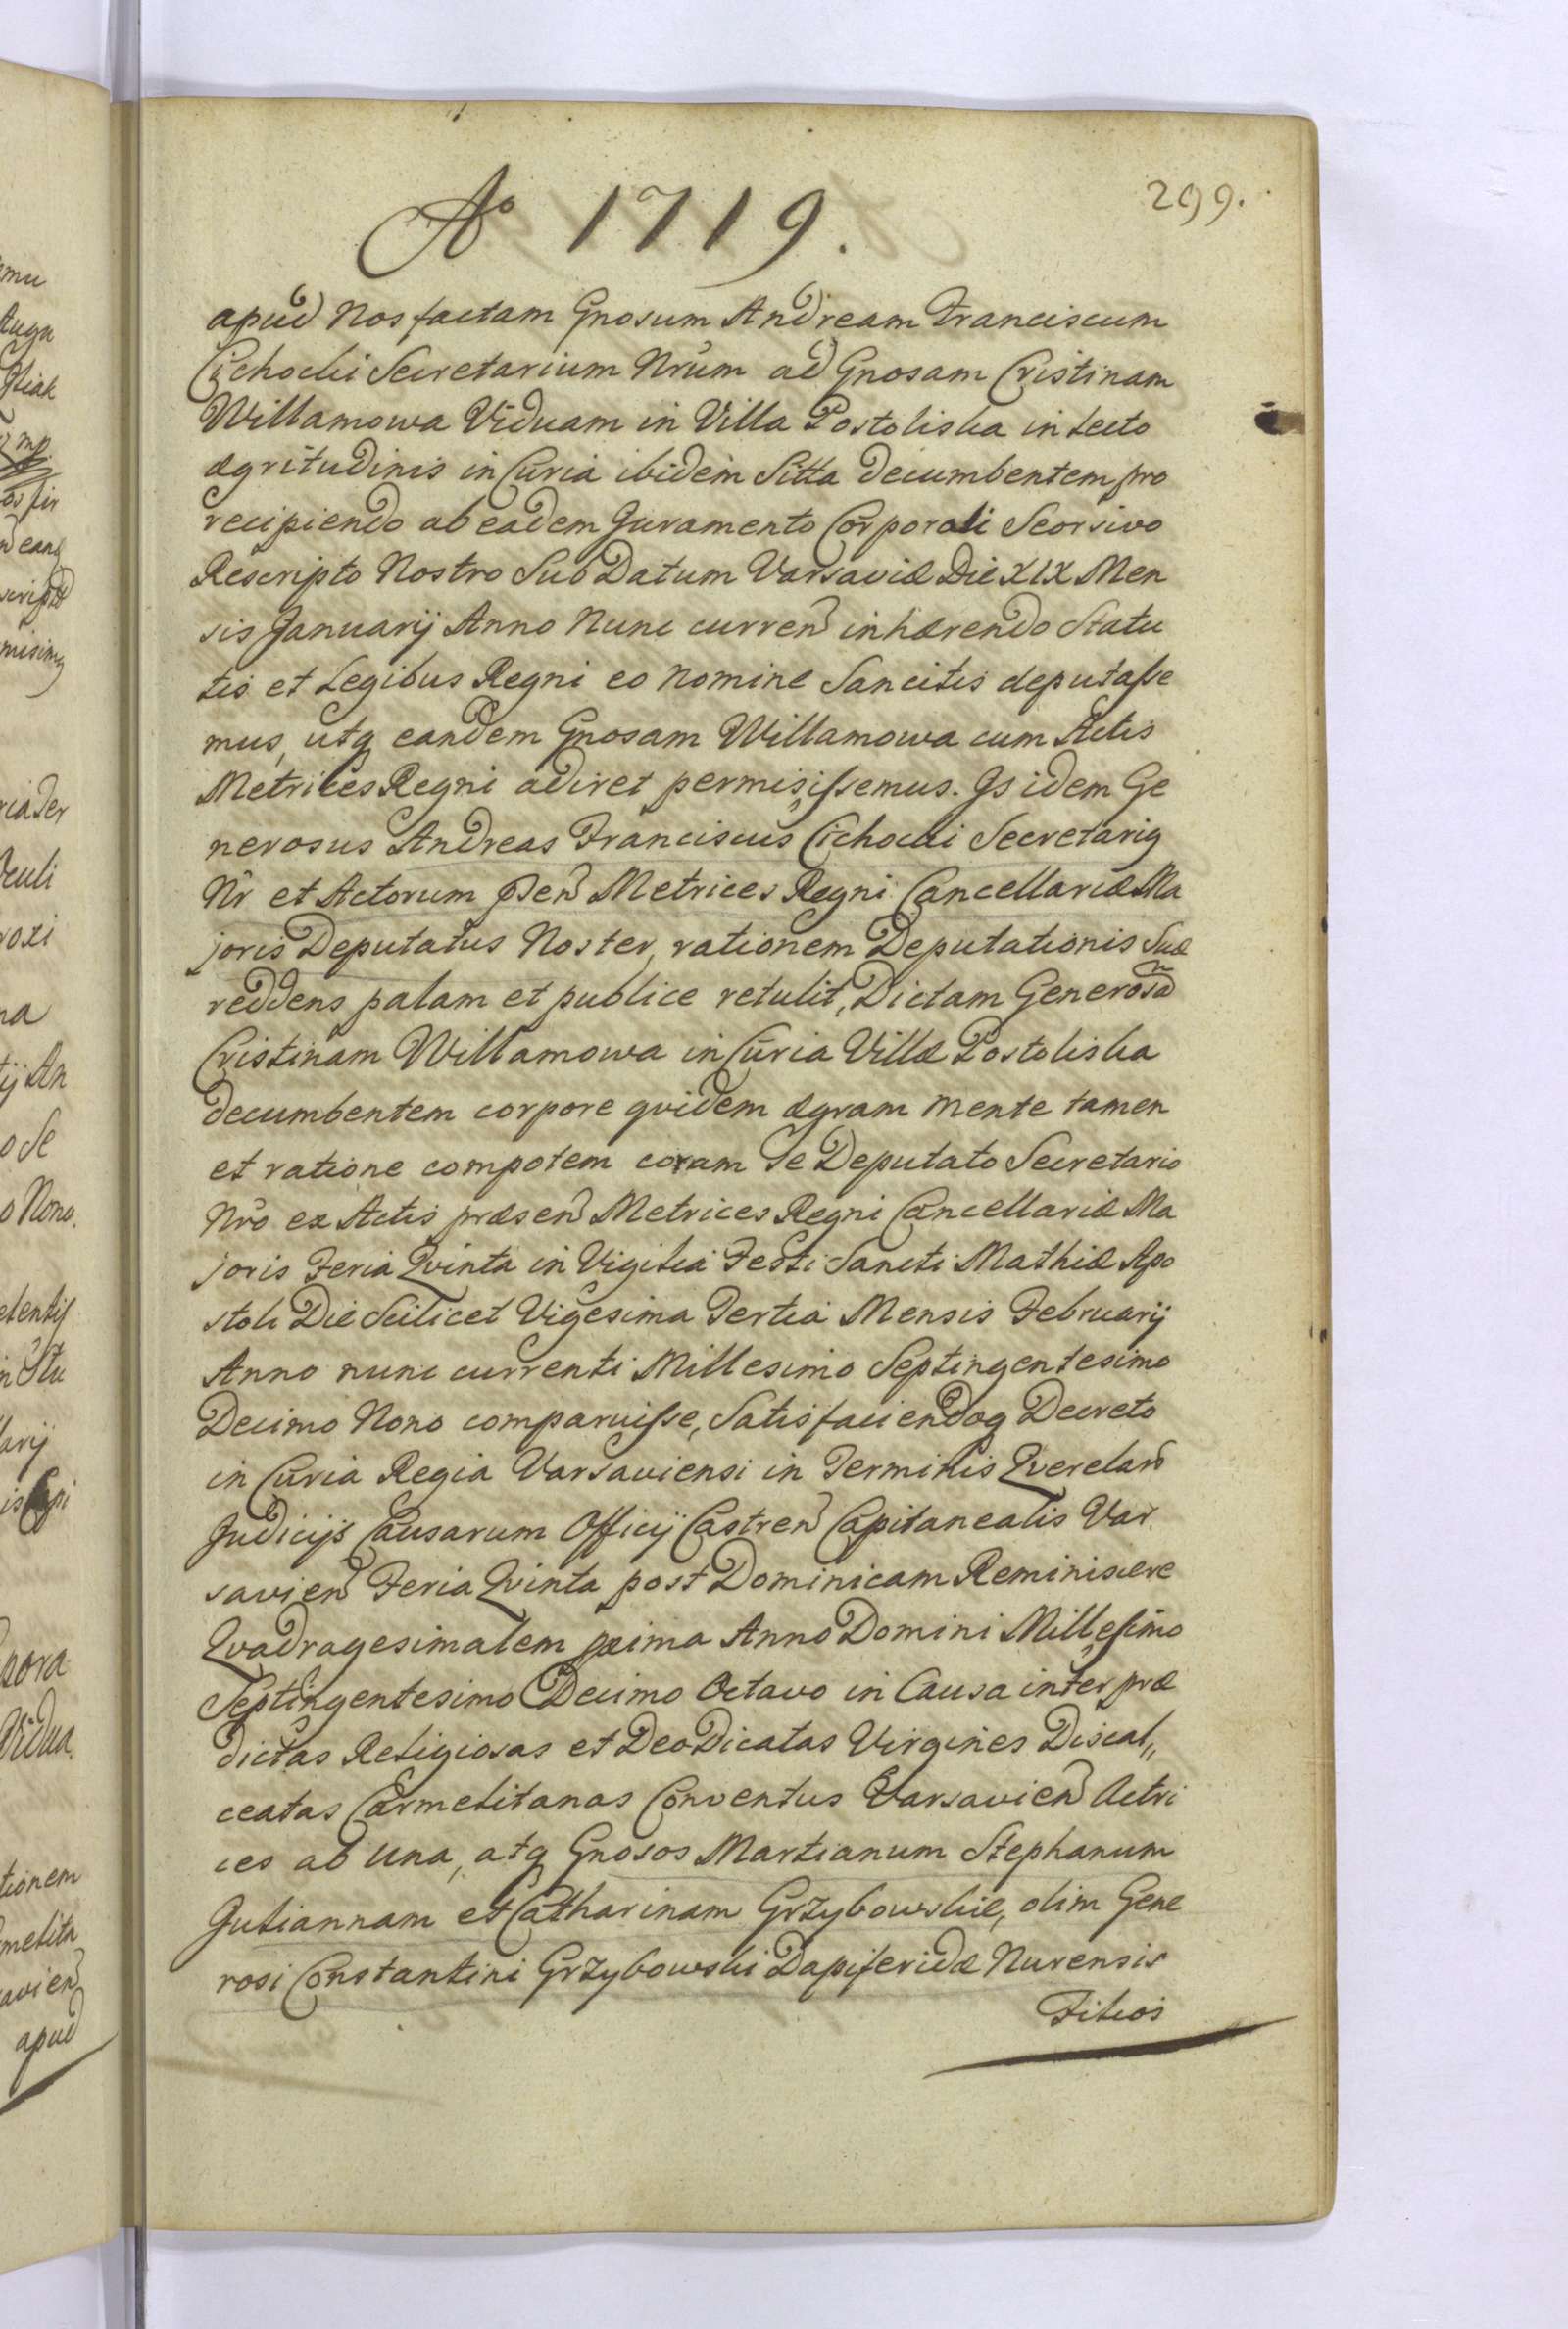 Ao 1719.
299.
apud Nos factam Gnosum Andream Franciscum
Cichocki Secretarium Nrum ad Gnosam Cristinam
Willamowa Viduam in Villa Postoliska in Lecto
ægritudinis in Curia ibidem Sitta decumbentem, pro
recipiendo ab eadem Juramento Corporali Seorsivo
Rescripto Nostro Sub Datum Varsaviæ Die XIX Men
sis Januarij Anno Nunc curren inhærendo Statu
tis et Legibus Regni eo Nomine Sancitis deputasse
mus, utq eandem Gnosam Willamowa cum Actis
Metrices Regni adiret permisissemus. Is idem Ge
nerosus Andreas Franciscus Cichocki Secretarig
Nr et Actorum pñen Metrices Regni Cancellariæ Ma
joris Deputatus Noster, rationem Deputationis Suæ
reddens palam et publice retulit, Dictam Generosã
Cristinam Willamowa in Curia Villæ Postoliska
decumbentem corpore qvidem ægram Mente tamen
et ratione compotem coram Se Deputato Secretario
Nro ex Actis præsen Metrices Regni Cancellariæ Ma
joris Feria Qvinta in Vigilia Festi Sancti Mathiæ Apo
stoli Die Scilicet Vigesima Tertia Mensis Februarij
Anno nunc currenti Millesimo Septingentesimo
Decimo Nono comparuisse, Satisfaciendoq Decreto
in Curia Regia Varsaviensi in Terminis Qverelarũ
Judicijs Causarum Officij Castren Capitanealis Var
savien Feria Qvinta post Dominicam Reminiscere
Qvadragesimalem pxima Anno Domini Millesimo
Septingentesimo Decimo Octavo in Causa inter præ
dictas Religiosas et Deo Dicatas Virgines Discal„
ceatas Carmelitanas Conventus Varsavien Actri
ces ab Una, atq Gnosos Martianum Stephanum
Juliannam et Catharinam Grzybowskie, olim Gene
rosi Constantini Grzybowski Dapiferidæ Nurensis
Filios